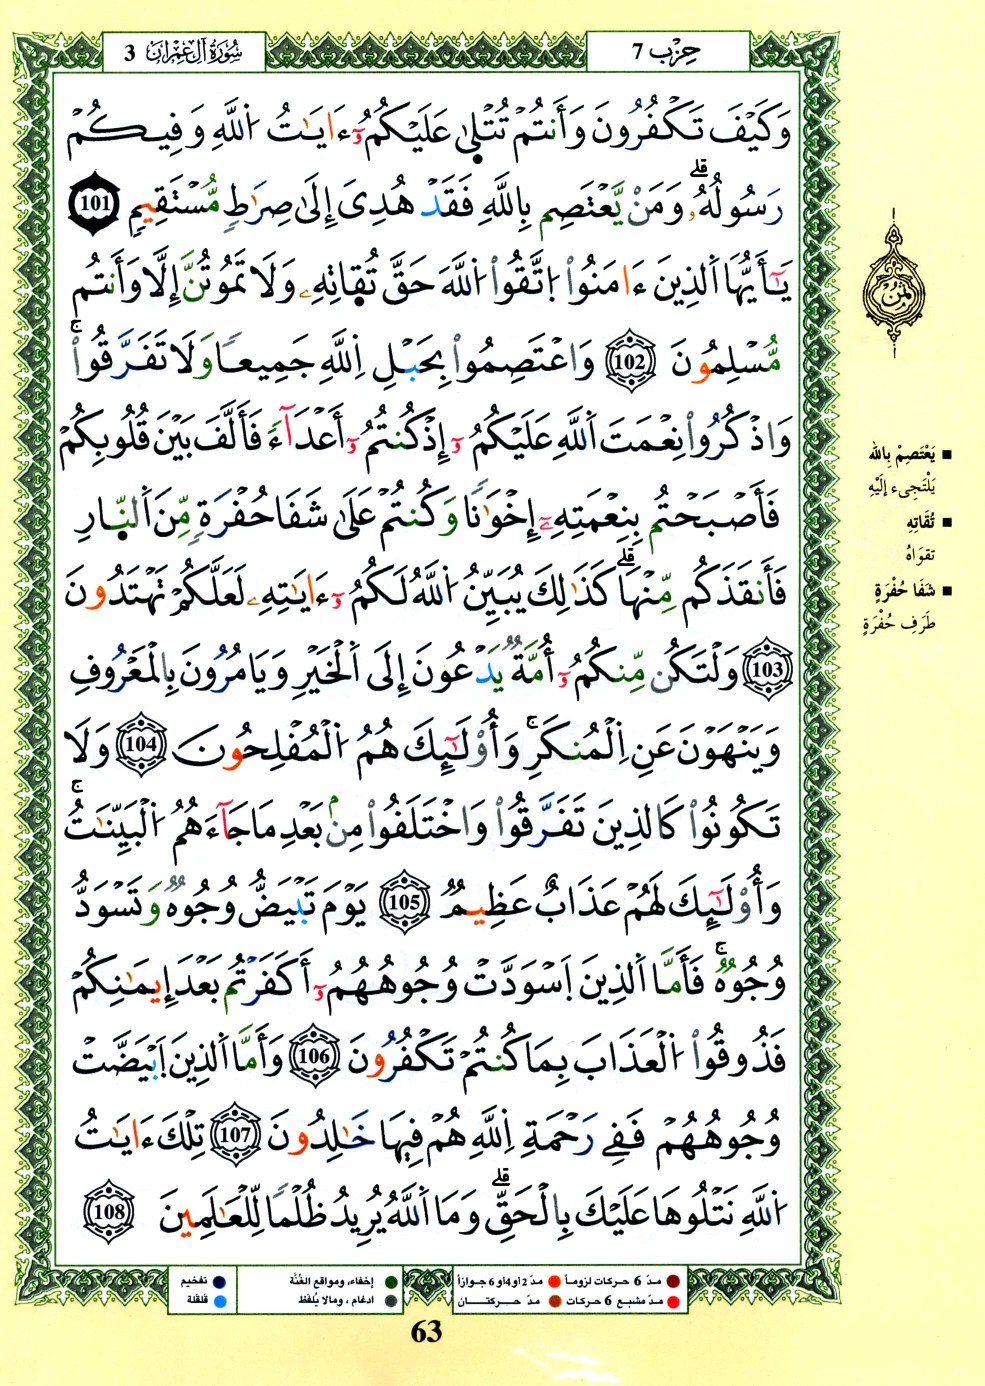 سُورَةُ آلِ عِمْرَانَ 3
حِزْب 7
وَكَيْفَ تَكْفُرُونَ وَأَنتُمْ تُتْلَىٰ عَلَيْكُمُۥٓ ءَايَٰتُ اُ۬للَّهِ وَفِيكُمْ
رَسُولُهُۥۖ وَمَنْ يَّعْتَصِم بِاللَّهِ فَقَدْ هُدِىَ إِلَىٰ صِرَٰطٖ مُّسْتَقِيمٖ 101
يَٰٓأَيُّهَا اَ۬لذِينَ ءَامَنُواْ اُ۪تَّقُواْ اُ۬للَّهَ حَقَّ تُقَاتِهِۦ وَلَا تَمُوتُنَّ إِلَّا وَأَنتُم
مُّسْلِمُونَ 102 وَاعْتَصِمُواْ بِحَبْلِ اِ۬للَّهِ جَمِيعاٗ وَلَا تَفَرَّقُواْۚ
وَاذْكُرُواْ نِعْمَتَ اَ۬للَّهِ عَلَيْكُمُۥٓ إِذْ كُنتُمُۥٓ أَعْدَآءٗ فَأَلَّفَ بَيْنَ قُلُوبِكُمْ
فَأَصْبَحْتُم بِنِعْمَتِهِۦٓ إِخْوَٰناٗ وَكُنتُمْ عَلَىٰ شَفَا حُفْرَةٖ مِّنَ اَ۬لنَّارِ
فَأَنقَذَكُم مِّنْهَاۖ كَذَٰلِكَ يُبَيِّنُ اُ۬للَّهُ لَكُمُۥٓ ءَايَٰتِهِۦ لَعَلَّكُمْ تَهْتَدُونَ
103 وَلْتَكُن مِّنكُمُۥٓ أُمَّةٞ يَدْعُونَ إِلَى اَ۬لْخَيْرِ وَيَامُرُونَ بِالْمَعْرُوفِ
وَيَنْهَوْنَ عَنِ اِ۬لْمُنكَرِۚ وَأُوْلَٰٓئِكَ هُمُ اُ۬لْمُفْلِحُونَ 104 وَلَا
تَكُونُواْ كَالذِينَ تَفَرَّقُواْ وَاخْتَلَفُواْ مِنۢ بَعْدِ مَا جَآءَهُمُ اُ۬لْبَيِّنَٰتُۚ
وَأُوْلَٰٓئِكَ لَهُمْ عَذَابٌ عَظِيمٞ 105 يَوْمَ تَبْيَضُّ وُجُوهٞ وَتَسْوَدُّ
وُجُوهٞۚ فَأَمَّا اَ۬لذِينَ اَ۪سْوَدَّتْ وُجُوهُهُمُۥٓ أَكَفَرْتُم بَعْدَ إِيمَٰنِكُمْ
فَذُوقُواْ اُ۬لْعَذَابَ بِمَا كُنتُمْ تَكْفُرُونَ 106 وَأَمَّا اَ۬لذِينَ اَ۪بْيَضَّتْ
وُجُوهُهُمْ فَفِى رَحْمَةِ اِ۬للَّهِ هُمْ فِيهَا خَٰلِدُونَ 107 تِلْكَ ءَايَٰتُ
اُ۬للَّهِ نَتْلُوهَا عَلَيْكَ بِالْحَقِّۖ وَمَا اَ۬للَّهُ يُرِيدُ ظُلْماٗ لِّلْعَٰلَمِينَ 108
ثُمُن
■ يَعْتَصِمْ بِالله
يَلْتَجِىء إِلَيْهِ
■ تُقَاتِهِ
تقوَاهُ
■ شَفَا حُفْرَةٍ
طَرَفِ حُفْرَةٍ
مدّ 6 حركات لزوماً
مدّ 2 او 4 او 6 جوازاً
إخفاء، ومواقع الغُنَّة
تفخيم
مدّ مشبع 6 حركات
مدّ حركتان
ادغام ، ومالا يُلفَظ
قلقلة
63